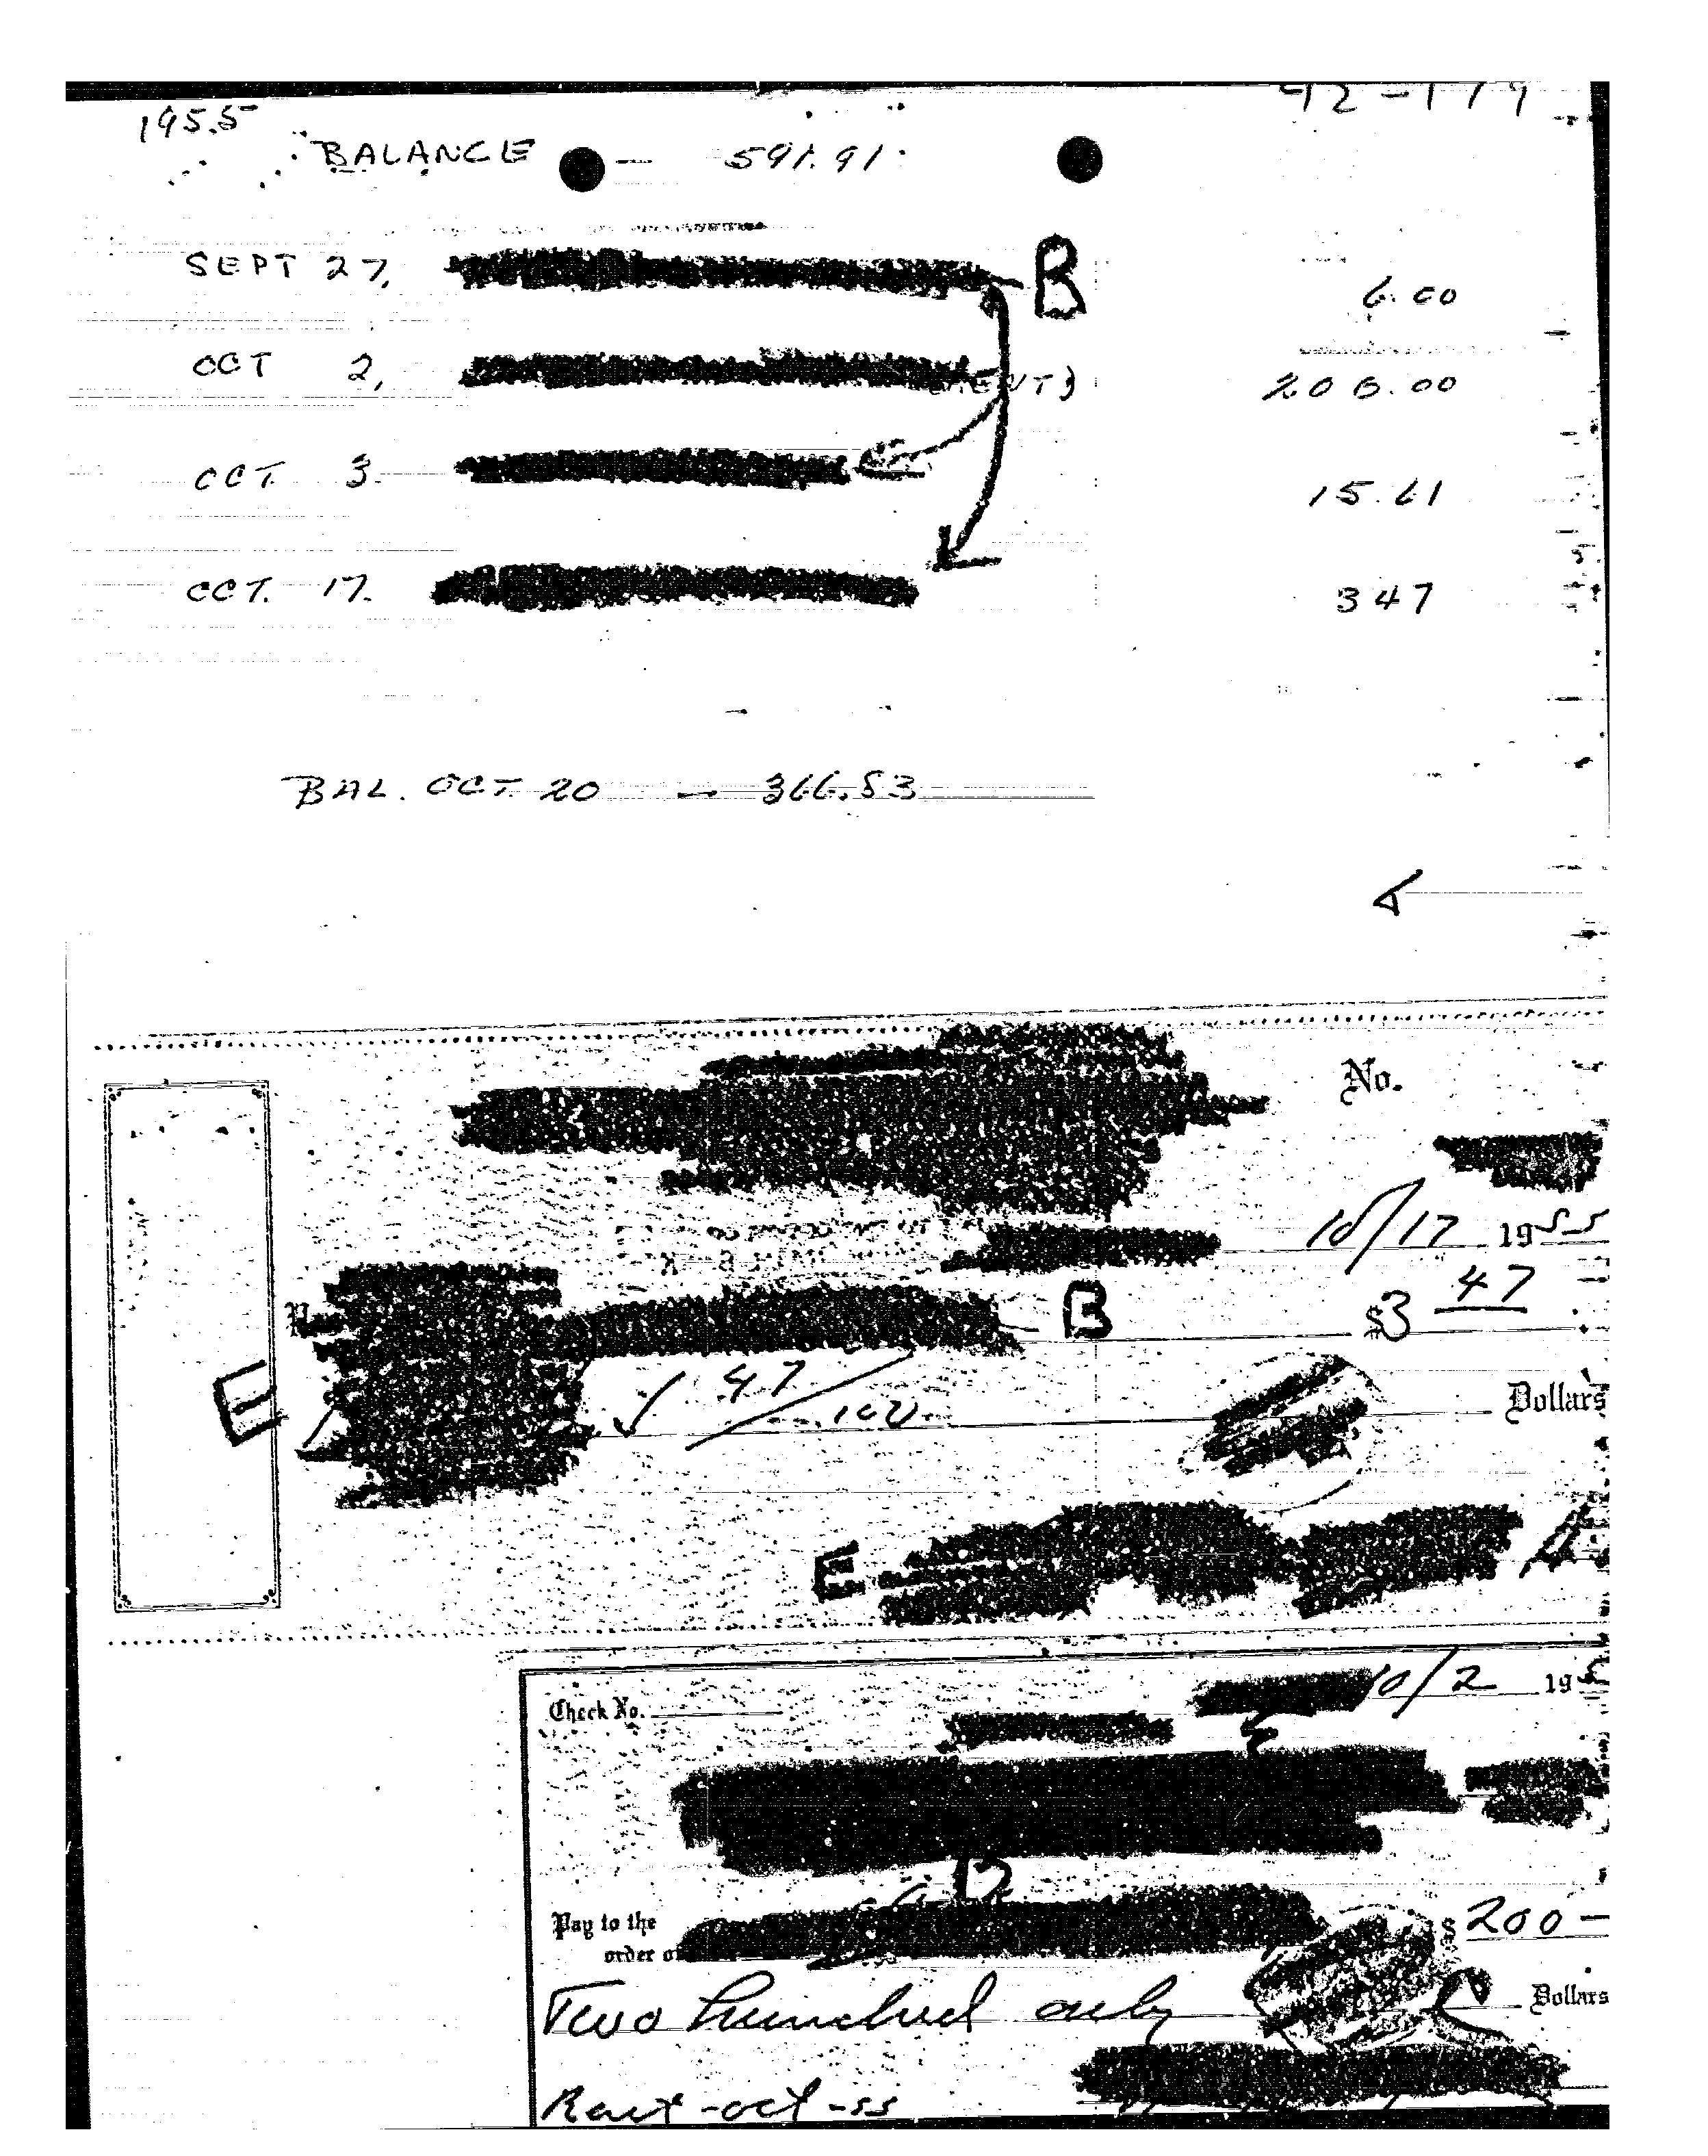 1955
BALANCE — 591.91
SEPT 27, B 6.00
OCT 2, 200.00
OCT 3. 15.61
OCT. 17. 347
BAL. OCT. 20 — 366.83
No.
10/17 1955
B $3 47
E 47/100 Dollars
E
10/2 19
Check No.
B
Pay to the
order of $ 200 —
Two hundred only Dollars
Rent - oct - 55